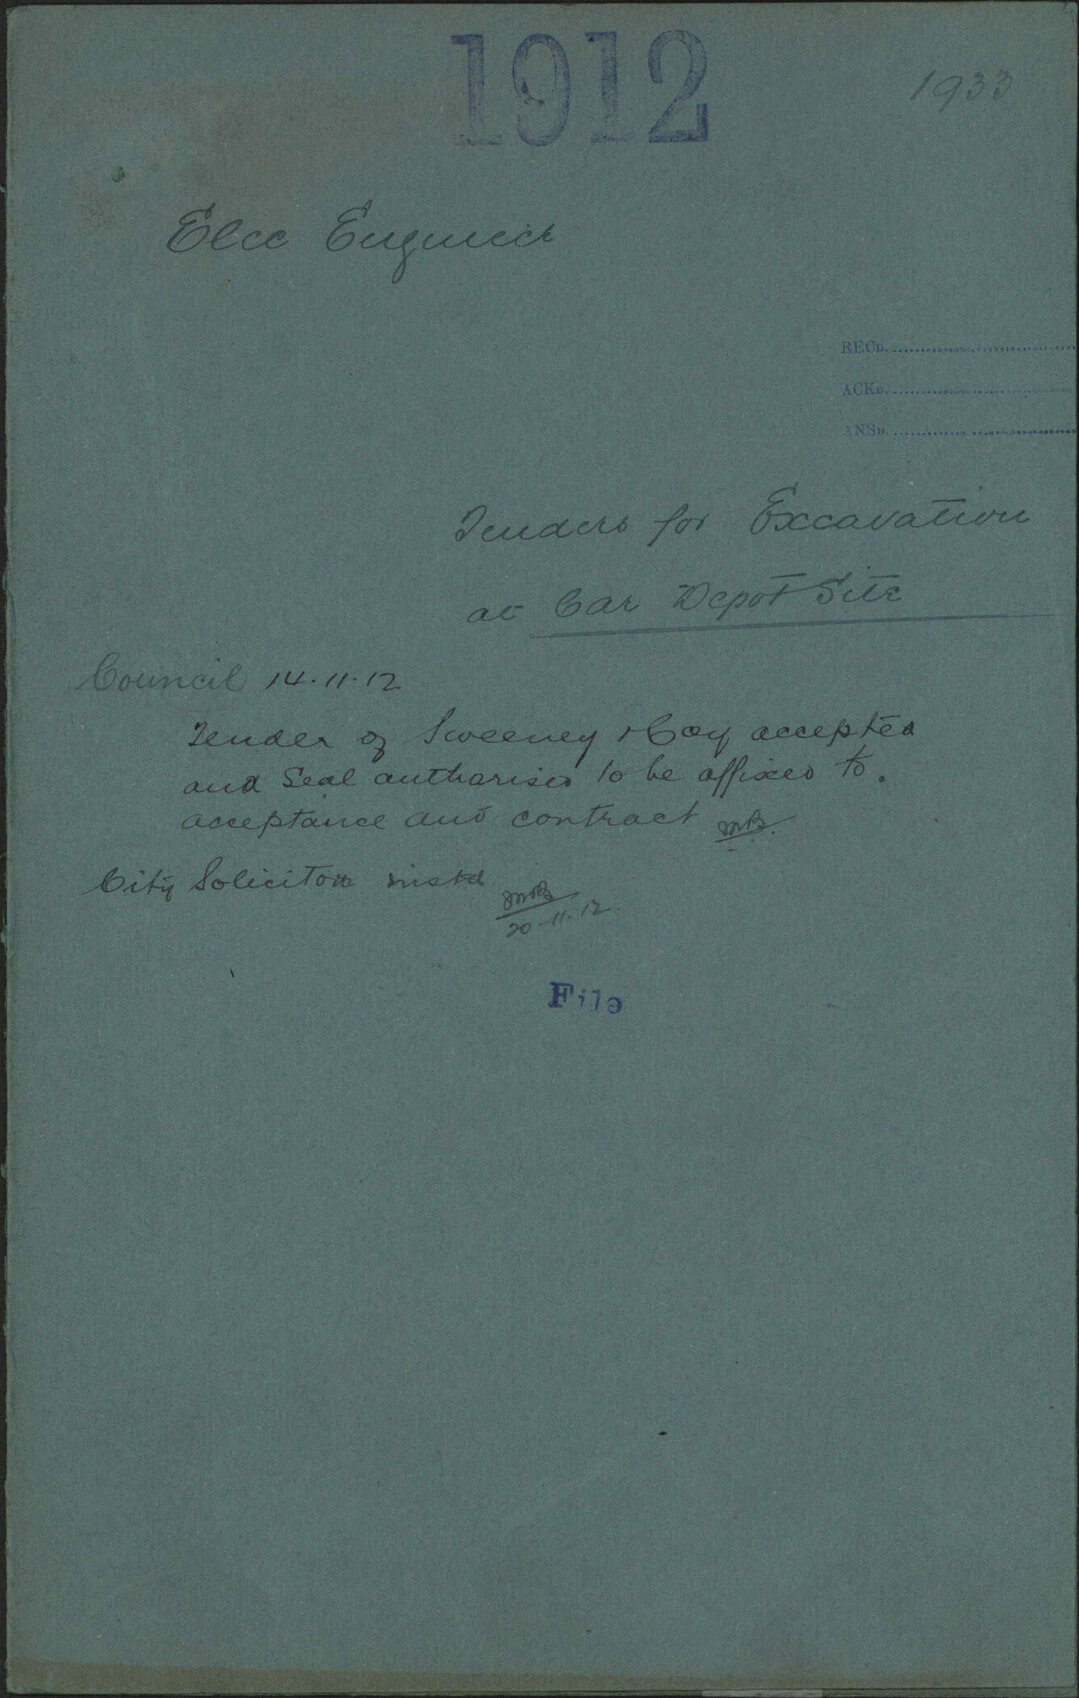 1912
1933
Elec Engineer
RECD.
ACKD.
ANSD.
Tenders for Excavation
at Car Depot Site
Council 14.11.12
Tender of Sweeney & Coy accepted
and Seal authorised to be affixed to
acceptance and contract
City Solicitor instd
20.11.12
File